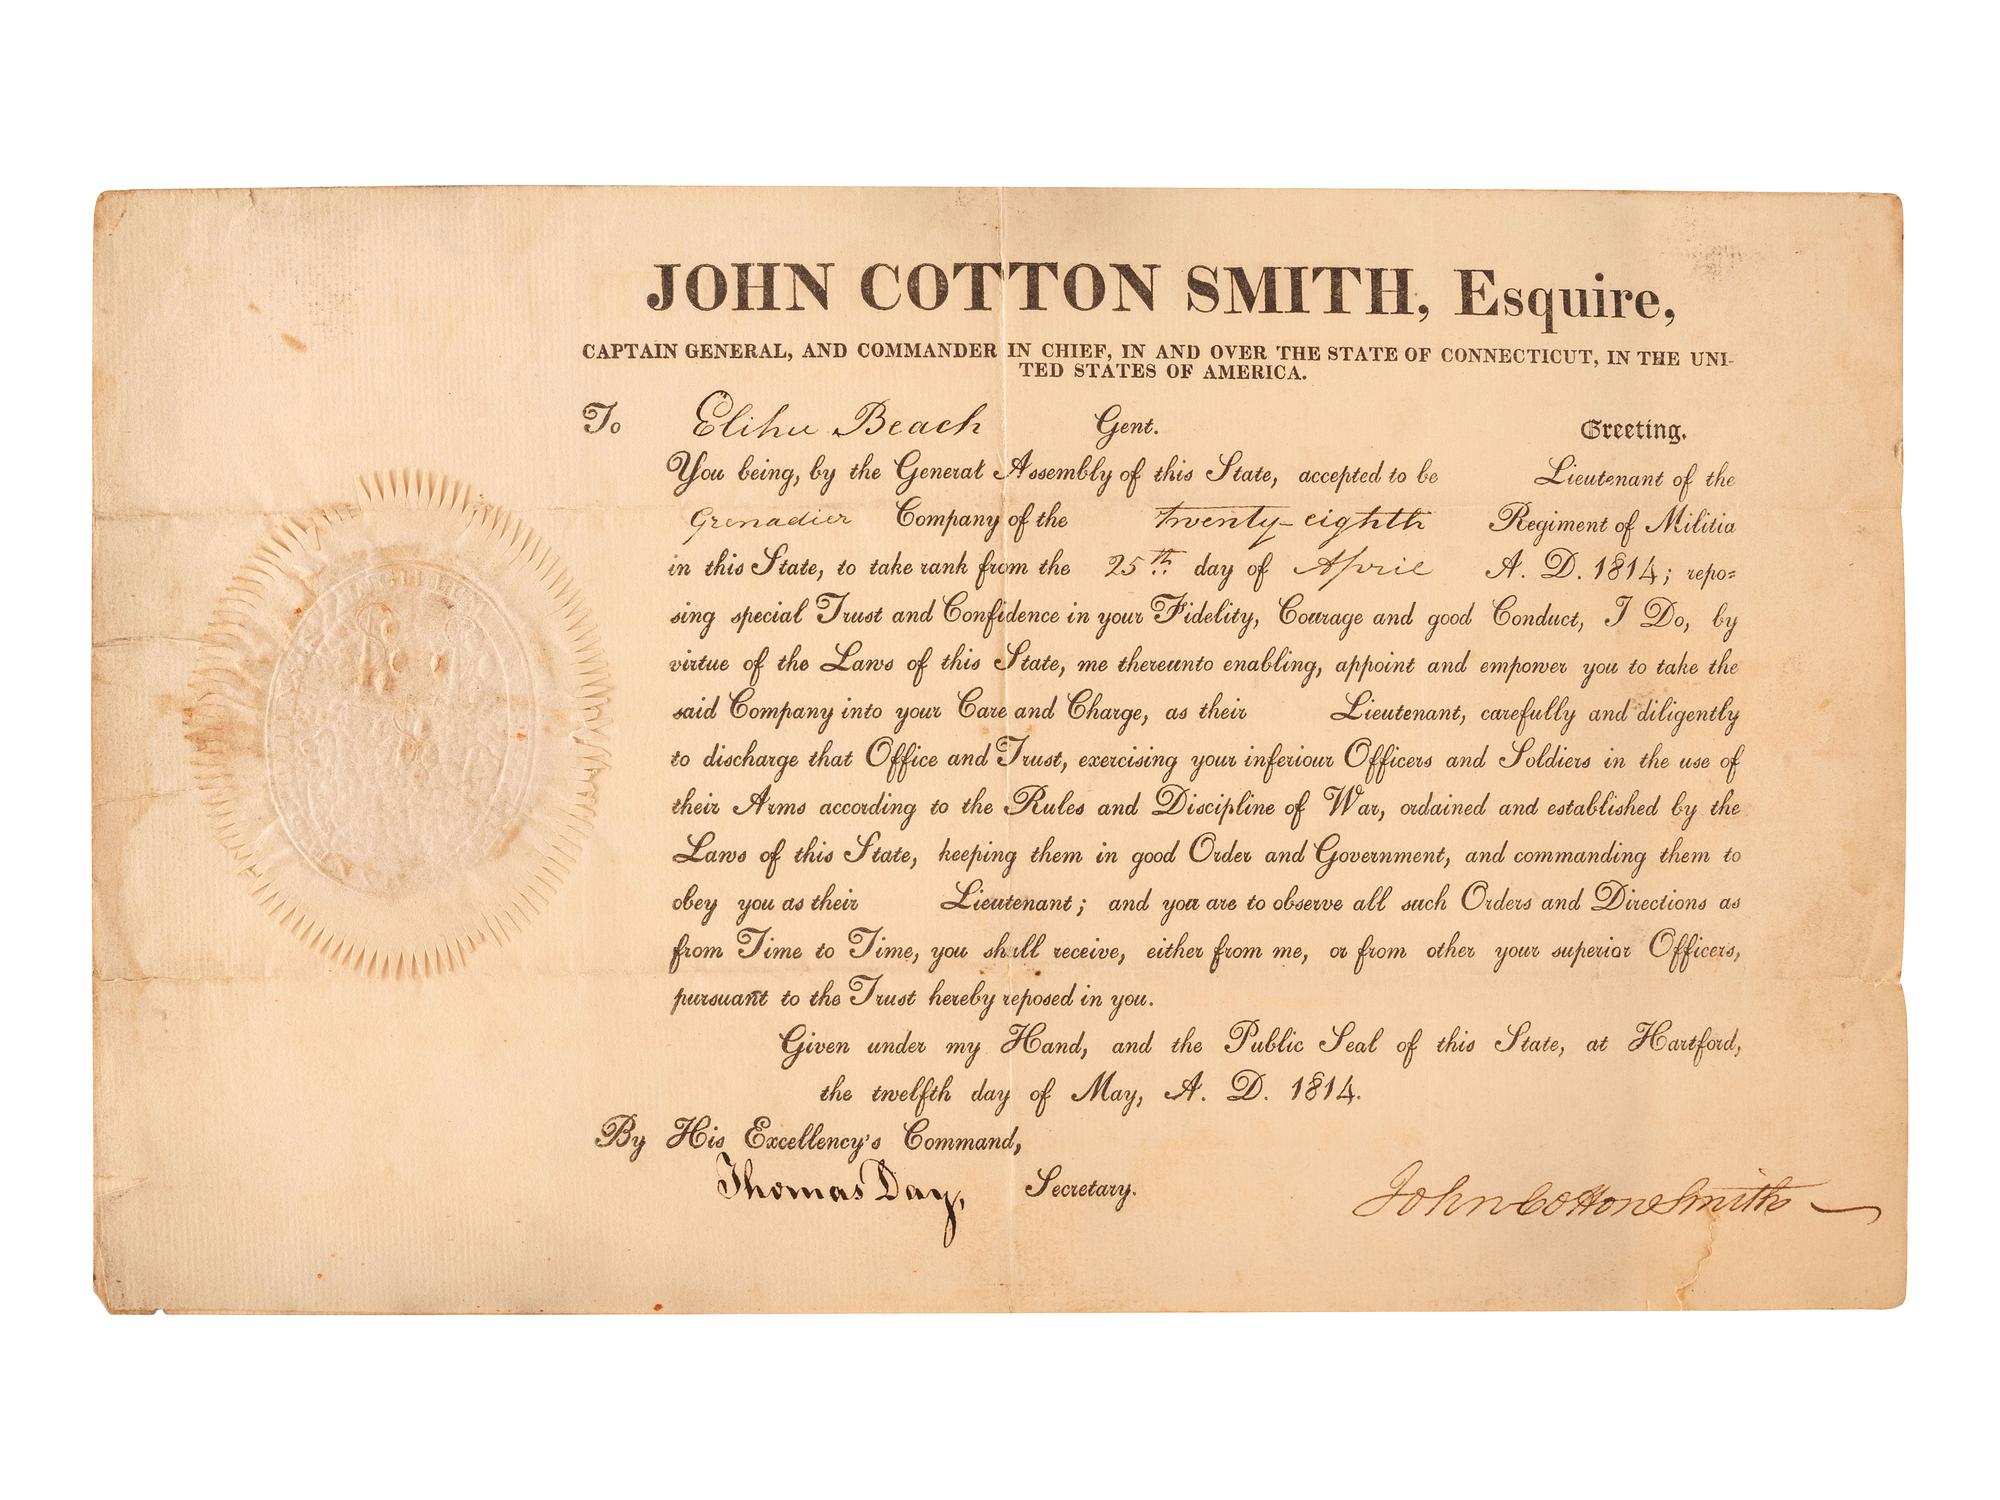 JOHN COTTON SMITH, Esquire,
CAPTAIN GENERAL, AND COMMANDER IN CHIEF, IN AND OVER THE STATE OF CONNECTICUT, IN THE UNI-
TED STATES OF AMERICA.
To Elihu Beach Gent. Greeting.
You being, by the General Assembly of this State, accepted to be Lieutenant of the
Grenadier Company of the twenty-eighth Regiment of Militia
in this State, to take rank from the 25th day of April A. D. 1814; repo=
sing special Trust and Confidence in your Fidelity, Courage and good Conduct, I Do, by
virtue of the Laws of this State, me thereunto enabling, appoint and empower you to take the
said Company into your Care and Charge, as their Lieutenant, carefully and diligently
to discharge that Office and Trust, exercising your inferiour Officers and Soldiers in the use of
their Arms according to the Rules and Discipline of War, ordained and established by the
Laws of this State, keeping them in good Order and Government, and commanding them to
obey you as their Lieutenant; and you are to observe all such Orders and Directions as
from Time to Time, you shall receive, either from me, or from other your superior Officers,
pursuant to the Trust hereby reposed in you.
Given under my Hand, and the Public Seal of this State, at Hartford,
the twelfth day of May, A. D. 1814.
By His Excellency's Command,
Thomas Day, Secretary.
John Cotton Smith